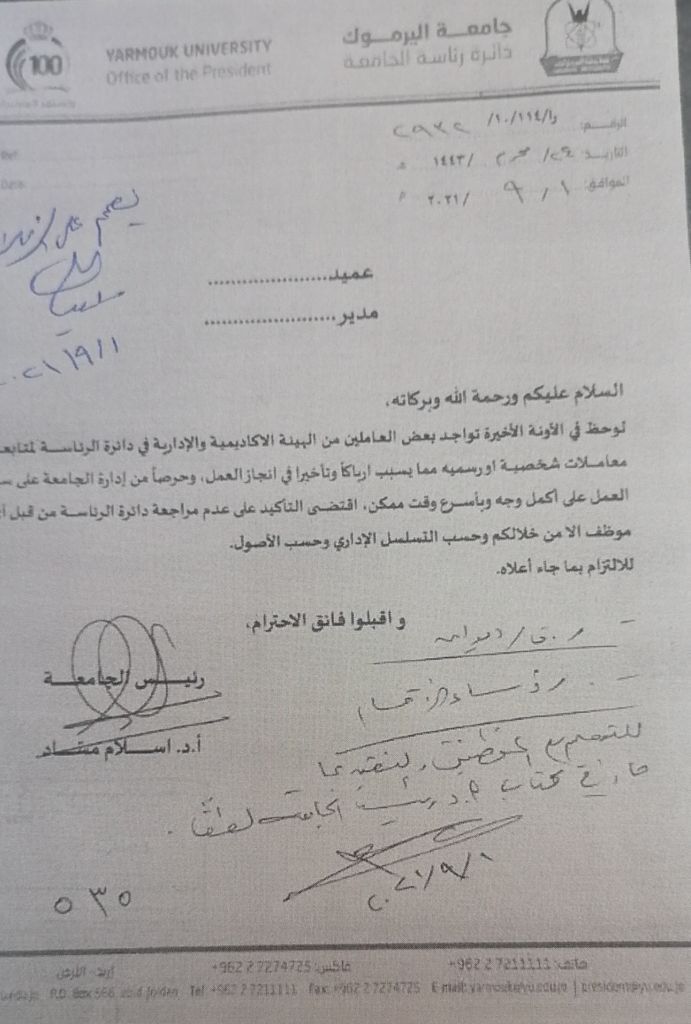 جامعة اليرموك
دائرة رئاسة الجامعة
YARMOUK UNIVERSITY
Office of the President
100
الرقم: را/١١٤/١٠/ ٢٩٣٢
التاريخ: ٢٤/ محرم /١٤٤٣ هـ
الموافق: ١ / ٩ /٢٠٢١ م
Ref:
Date:
يعمم على
٢٠٢١/٩/١
عميد......................
مدير......................
السلام عليكم ورحمة الله وبركاته،
لوحظ في الآونة الأخيرة تواجد بعض العاملين من الهيئة الاكاديمية والإدارية في دائرة الرئاسة لمتابعة
معاملات شخصية او رسميه مما يسبب ارباكاً وتأخيرا في انجاز العمل، وحرصاً من إدارة الجامعة على
العمل على أكمل وجه وبأسرع وقت ممكن، اقتضى التأكيد على عدم مراجعة دائرة الرئاسة من قبل
موظف الا من خلالكم وحسب التسلسل الإداري وحسب الأصول.
للالتزام بما جاء أعلاه.
و اقبلوا فائق الاحترام،
رئيس الجامعة
أ.د. اسلام مسّاد
- ر.ق/ ديوان
- رؤساء الأقسام
للتعميم على الموظفين والتقيد بما
جاء في كتاب أ.د رئيس الجامعة
٢٠٢١/٩/١
٥٣٥
إربد - الأردن
فاكس: +962 2 7274725
هاتف: +962 2 7211111
P.O. Box 566 Irbid Jordan Tel: +962 2 7211111 Fax: +962 2 7274725 E-mail: yarmouk@yu.edu.jo | president@yu.edu.jo